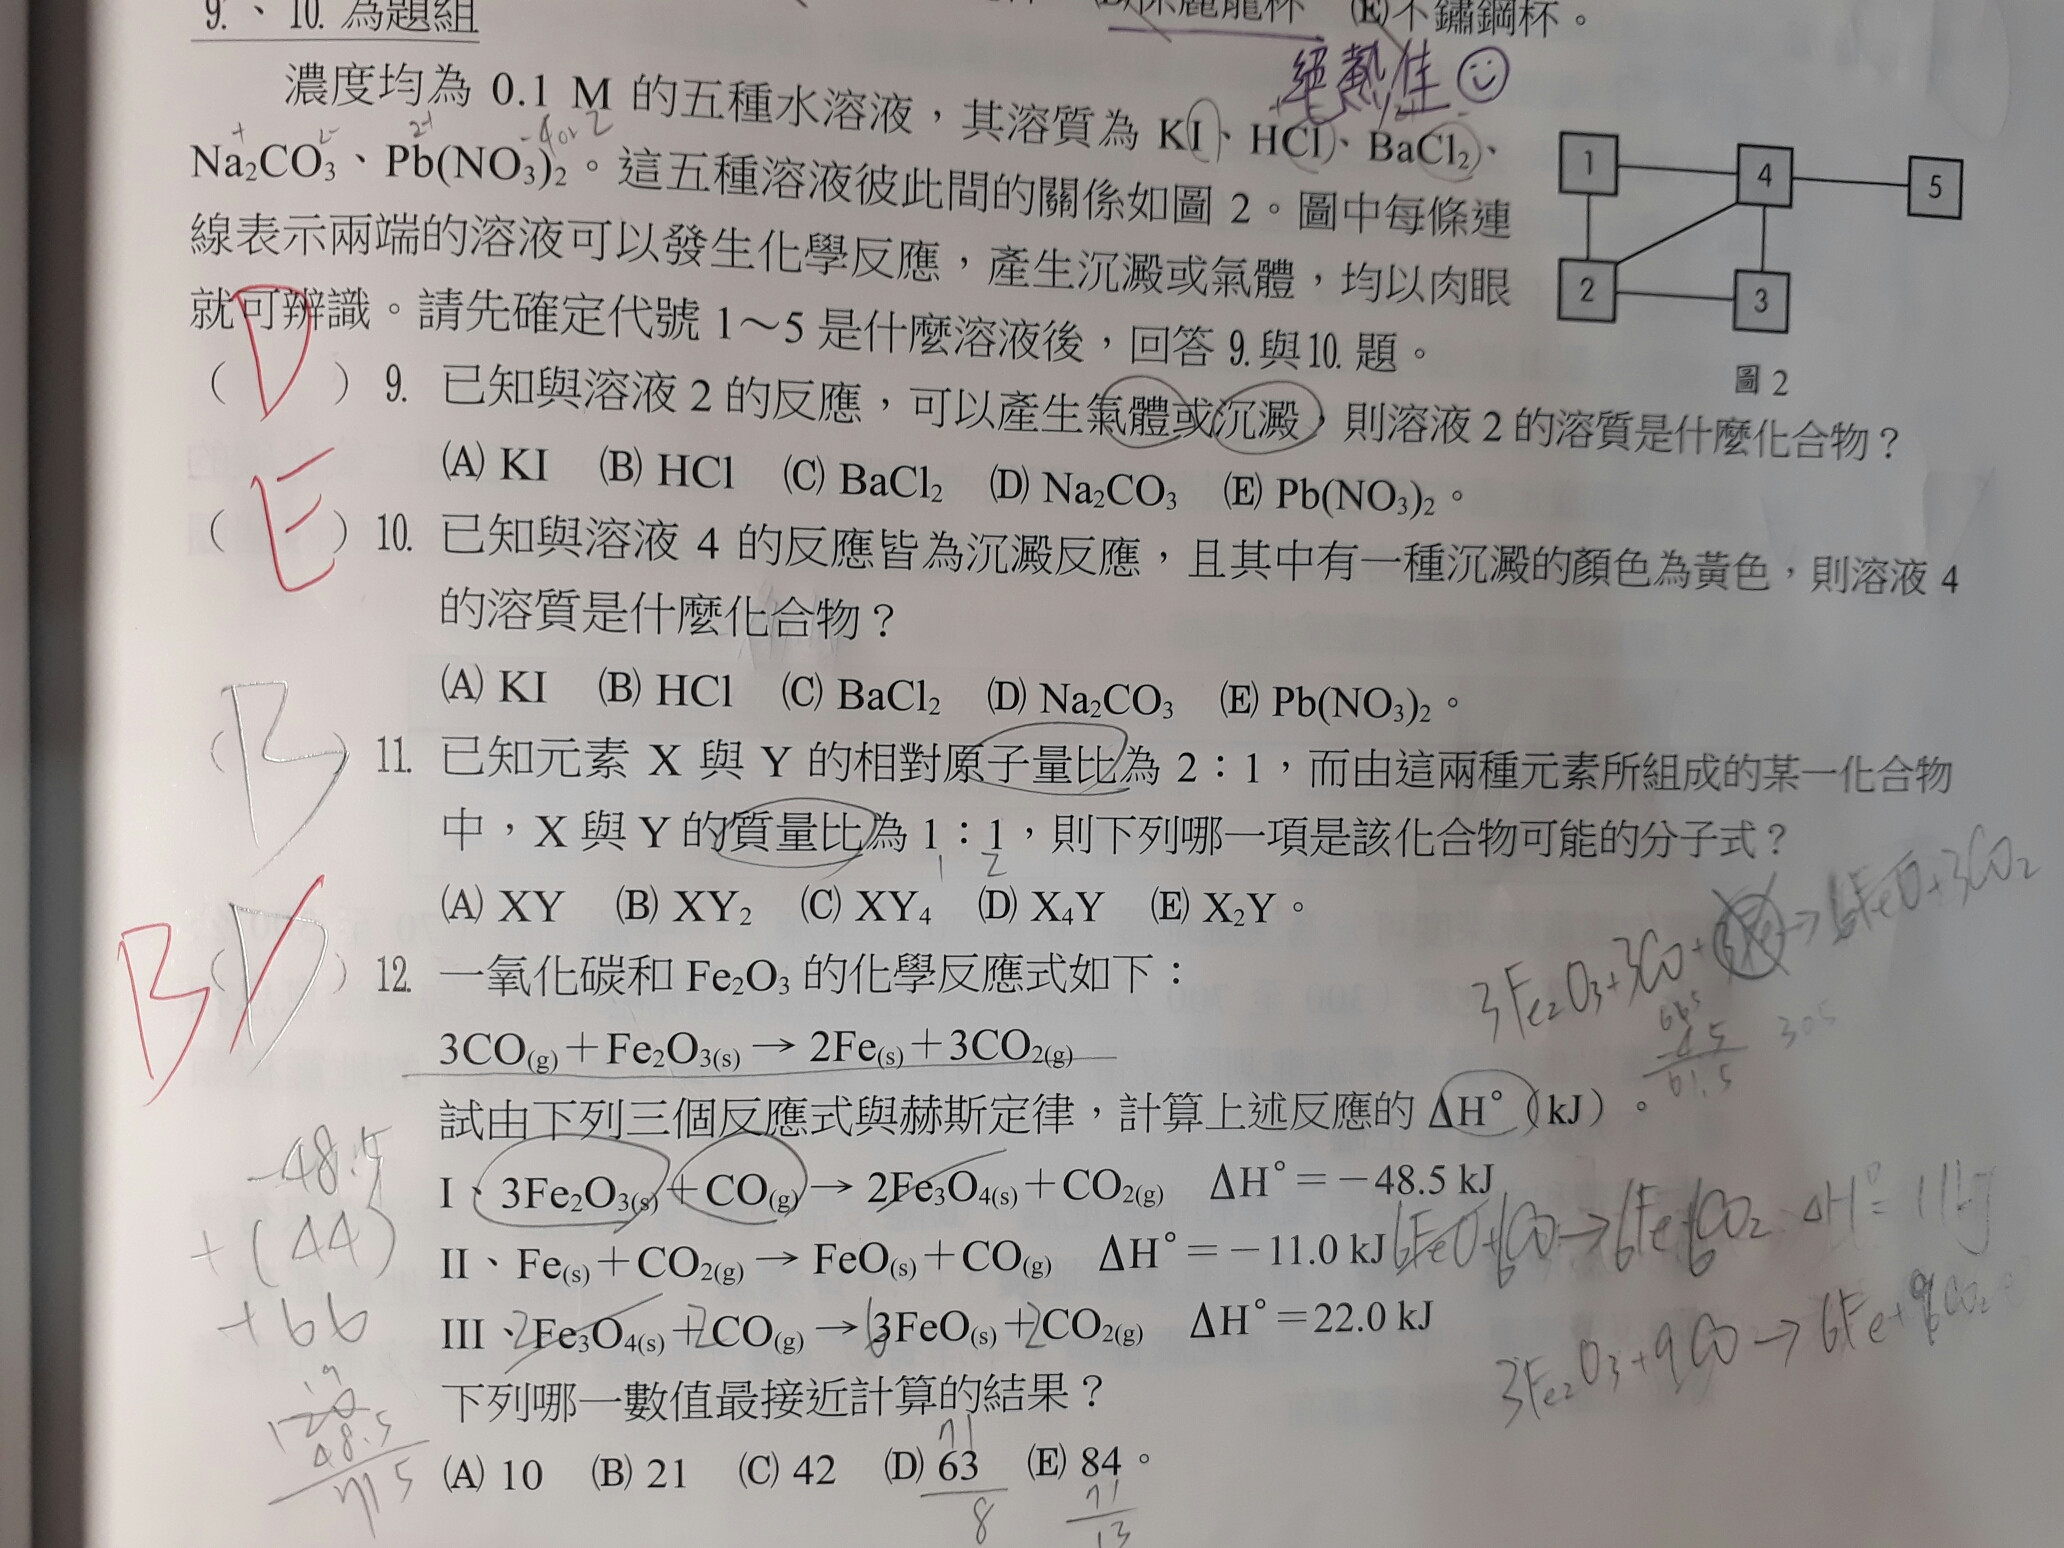 9.、10.為題組
(E)不鏽鋼杯。
絕熱佳
濃度均為 0.1 M 的五種水溶液，其溶質為 KI、HCl、BaCl₂、
Na₂CO₃、Pb(NO₃)₂。這五種溶液彼此間的關係如圖 2。圖中每條連
線表示兩端的溶液可以發生化學反應，產生沉澱或氣體，均以肉眼
就可辨識。請先確定代號 1～5 是什麼溶液後，回答 9.與10.題。
1
4
5
2
3
圖 2
(D) 9. 已知與溶液 2 的反應，可以產生氣體或沉澱，則溶液 2 的溶質是什麼化合物？
(A) KI (B) HCl (C) BaCl₂ (D) Na₂CO₃ (E) Pb(NO₃)₂。
(E) 10. 已知與溶液 4 的反應皆為沉澱反應，且其中有一種沉澱的顏色為黃色，則溶液 4
的溶質是什麼化合物？
(A) KI (B) HCl (C) BaCl₂ (D) Na₂CO₃ (E) Pb(NO₃)₂。
(B) 11. 已知元素 X 與 Y 的相對原子量比為 2：1，而由這兩種元素所組成的某一化合物
中，X 與 Y 的質量比為 1：1，則下列哪一項是該化合物可能的分子式？
1 2
(A) XY (B) XY₂ (C) XY₄ (D) X₄Y (E) X₂Y。
B(D) 12. 一氧化碳和 Fe₂O₃ 的化學反應式如下：
3Fe₂O₃+3CO+ → 6FeO+3CO₂
3CO(g)＋Fe₂O₃(s) → 2Fe(s)＋3CO₂(g)
試由下列三個反應式與赫斯定律，計算上述反應的 ΔH°（kJ）。
61.5
305
I、3Fe₂O₃(s)＋CO(g) → 2Fe₃O₄(s)＋CO₂(g) ΔH°＝－48.5 kJ
II、Fe(s)＋CO₂(g) → FeO(s)＋CO(g) ΔH°＝－11.0 kJ
6FeO+6CO→6Fe+6CO₂ ΔH°=11kJ
III、Fe₃O₄(s)＋CO(g) → 3FeO(s)＋CO₂(g) ΔH°＝22.0 kJ
3Fe₂O₃+9CO→6Fe+9CO₂
下列哪一數值最接近計算的結果？
(A) 10 (B) 21 (C) 42 (D) 63 (E) 84。
-48.5
+(44)
+66
48.5
71
8
71
13